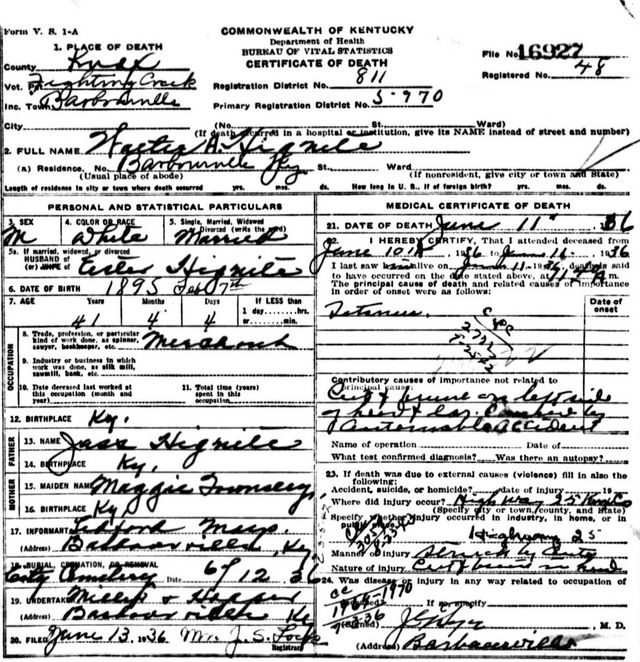 Form V. S. 1-A
COMMONWEALTH OF KENTUCKY
Department of Health
BUREAU OF VITAL STATISTICS
CERTIFICATE OF DEATH
File No. 16927
Registered No. 48
1. PLACE OF DEATH
County Knox
Vot. Fighting Creek
Inc. Town Barbourville
Registration District No. 811
Primary Registration District No. 5-970
City (No. St. Ward)
(If death occurred in a hospital or institution, give its NAME instead of street and number)
2. FULL NAME Walter H. Hignite
(a) Residence. No. Barbourville Ky St. Ward
(Usual place of abode) (If nonresident, give city or town and State)
Length of residence in city or town where death occurred yrs. mos. ds. How long in U. S., if of foreign birth? yrs. mos. ds.
PERSONAL AND STATISTICAL PARTICULARS
3. SEX M
4. COLOR OR RACE White
5. Single, Married, Widowed
Divorced (write the word) Married
5a. If married, widowed, or divorced
HUSBAND of
(or) WIFE of Hignite
6. DATE OF BIRTH 1895 Feb 7th
7. AGE Years Months Days If LESS than
41 4 4 1 day......hrs.
or......min.
OCCUPATION
8. Trade, profession, or particular
kind of work done, as spinner,
sawyer, bookkeeper, etc. Merchant
9. Industry or business in which
work was done, as silk mill,
sawmill, bank, etc.
10. Date deceased last worked at
this occupation (month and
year)
11. Total time (years)
spent in this
occupation
12. BIRTHPLACE Ky.
FATHER
13. NAME Hignite
14. BIRTHPLACE Ky.
MOTHER
15. MAIDEN NAME Maggie Townsley
16. BIRTHPLACE Ky
17. INFORMANT
(Address) Barbourville, Ky
18. BURIAL, CREMATION, OR REMOVAL
City Cemetery Date 6/12 36
19. UNDERTAKER Miller & Hopper
(Address) Barbourville Ky
20. FILED June 13, 1936 Mrs. J. S. Registrar
MEDICAL CERTIFICATE OF DEATH
21. DATE OF DEATH June 11 1936
22. I HEREBY CERTIFY, That I attended deceased from
June 10th 1936 to June 11 1936
I last saw him alive on June 11 1936, death is said
to have occurred on the date stated above, at
The principal cause of death and related causes of importance
in order of onset were as follows:
Date of
onset
Tetanus
Contributory causes of importance not related to
principal cause:
Cut & bruise on left side
of head & leg. Caused by
Automobile Accident
Name of operation Date of
What test confirmed diagnosis? Was there an autopsy?
23. If death was due to external causes (violence) fill in also the
following:
Accident, suicide, or homicide? date of injury 19
Where did injury occur? Highway 25 Knox Co
(Specify city or town, county, and State)
Specify whether injury occurred in industry, in home, or in
public place.
Highway 25
Manner of injury Struck by
Nature of injury
24. Was disease or injury in any way related to occupation of
deceased? If so, specify
(Signed) M. D.
(Address) Barbourville